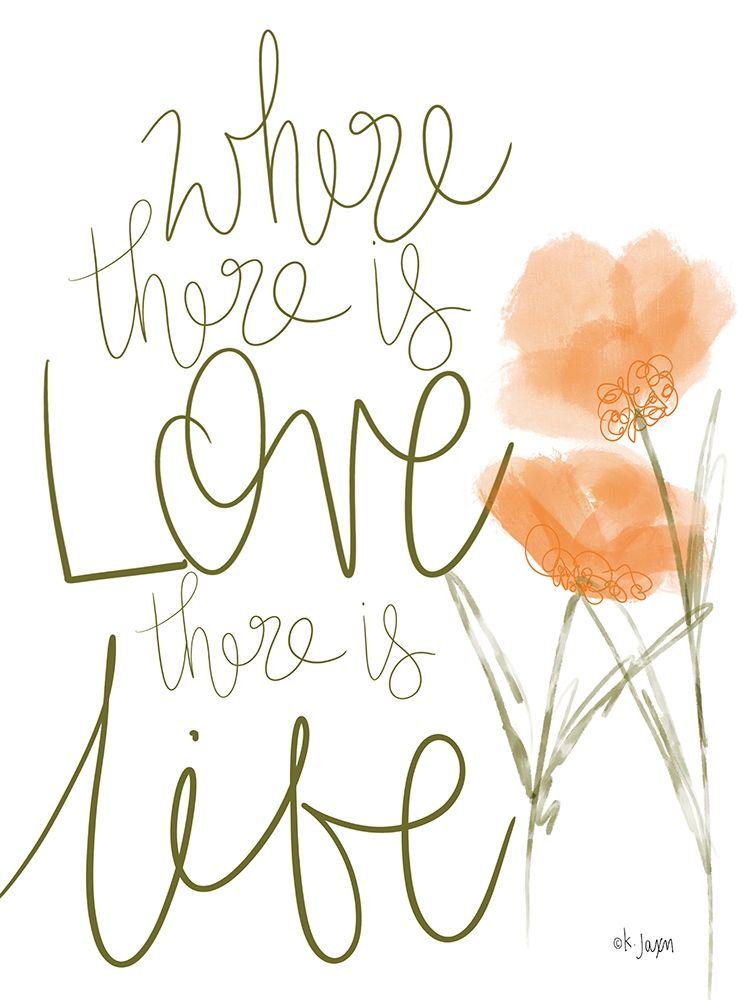 where
there is
Love
there is
life
©K. Jaxn